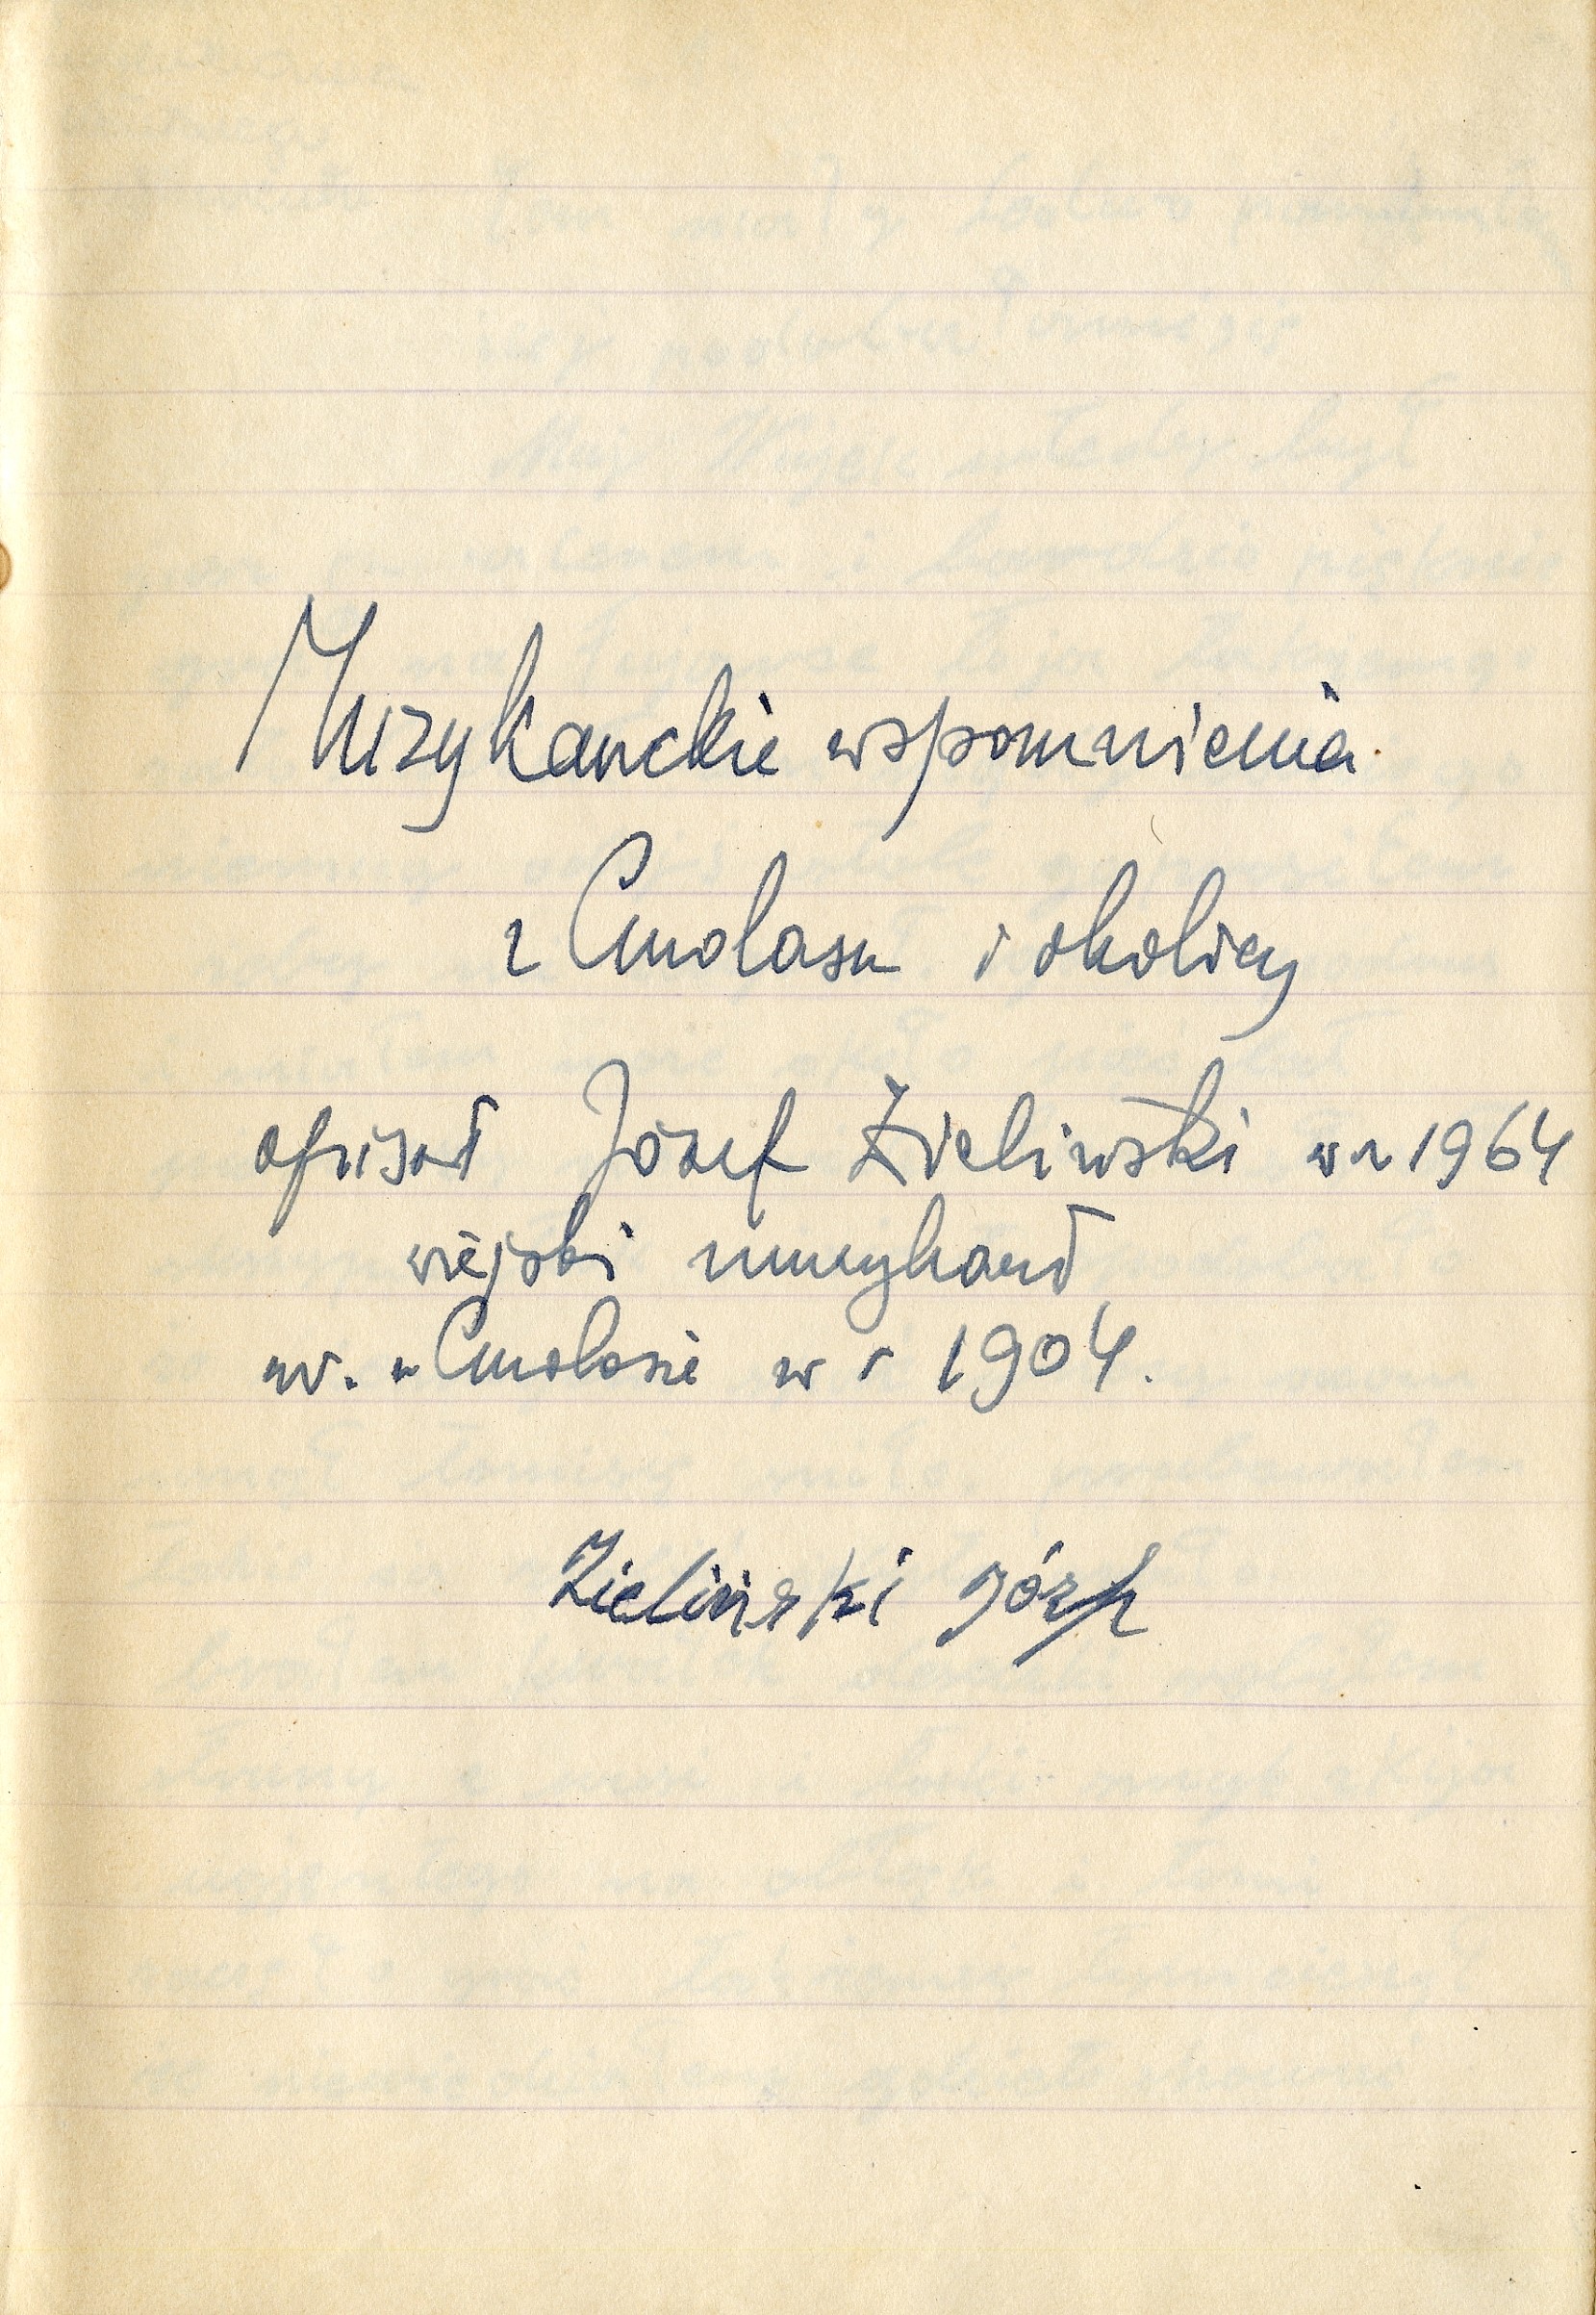 Muzykanckie wspomnienia
z Cmolasu i okolicy
opisał Józef Zieliński w r 1964
wiejski muzykant
ur. w Cmolasie w r 1904.
Zieliński Józef